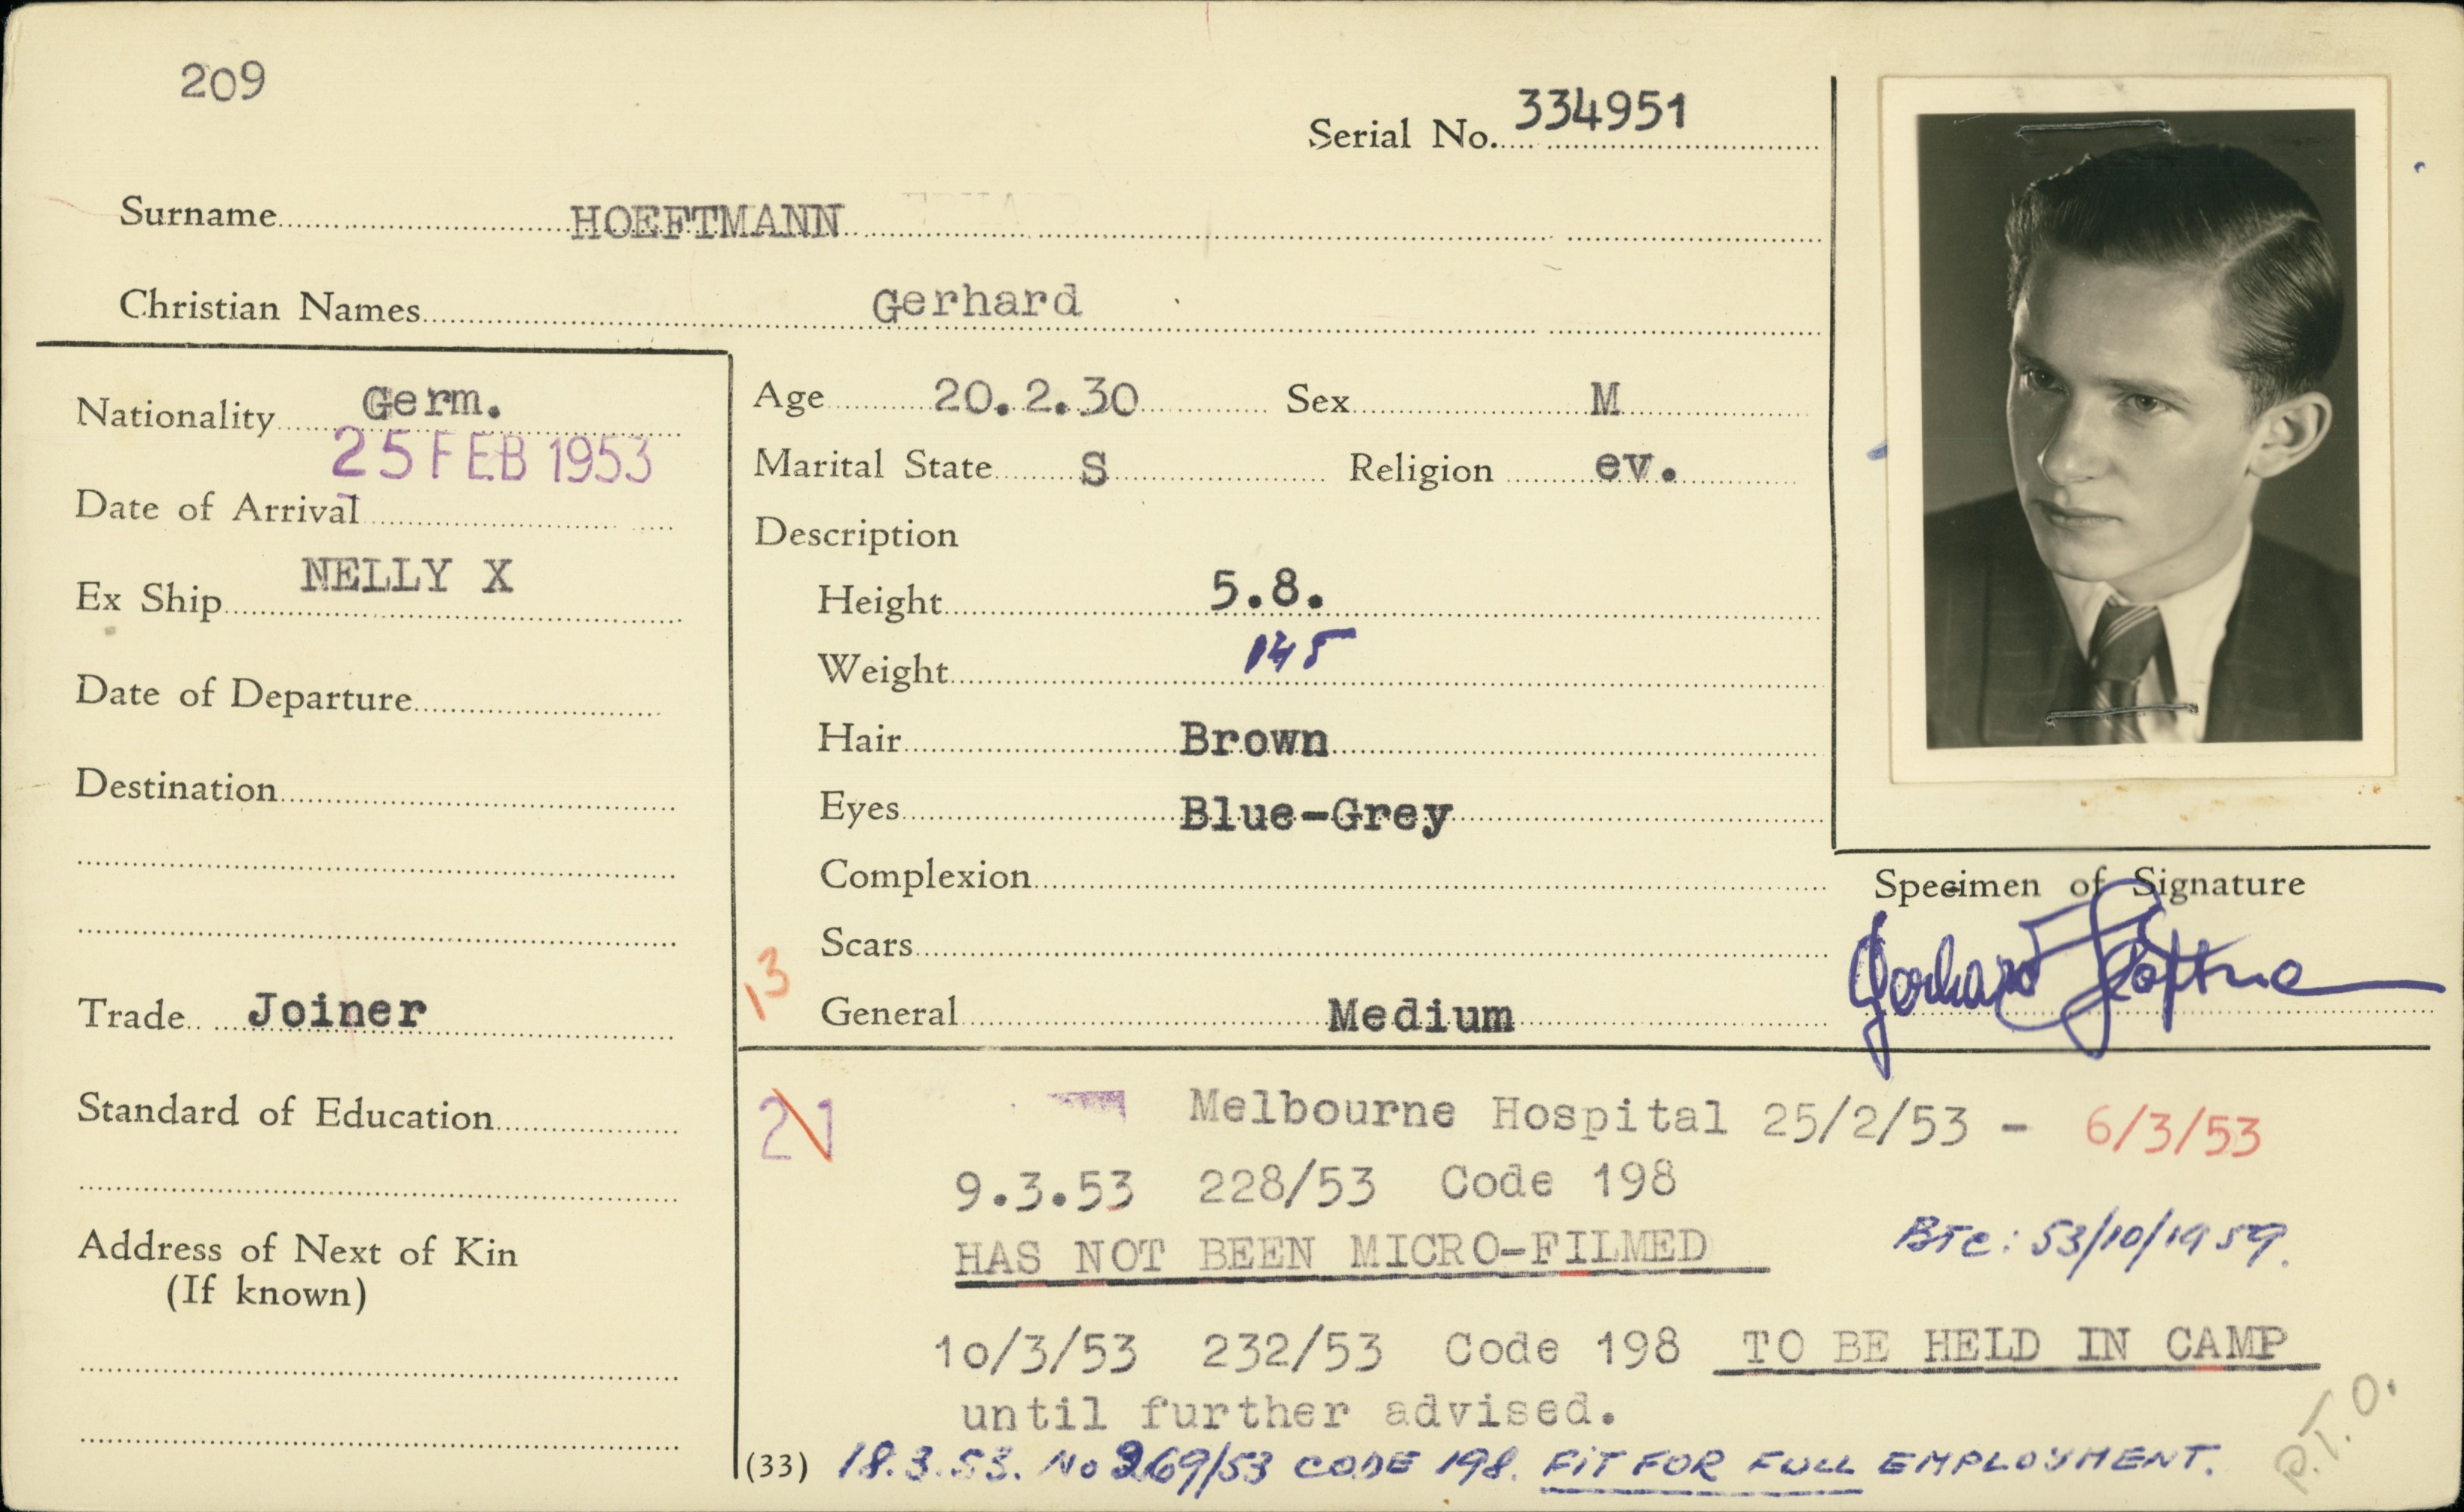 209
Serial No. 334951
Surname HOEFTMANN
Christian Names Gerhard
Nationality Germ.
25 FEB 1953
Date of Arrival
Ex Ship NELLY X
Date of Departure
Destination
Trade Joiner
Standard of Education
Address of Next of Kin
(If known)
Age 20.2.30 Sex M
Marital State S Religion ev.
Description
Height 5.8.
Weight 145
Hair Brown
Eyes Blue-Grey
Complexion
Scars
13
General Medium
Specimen of Signature
Gerhard
21
Melbourne Hospital 25/2/53 - 6/3/53
9.3.53 228/53 Code 198
HAS NOT BEEN MICRO-FILMED
53/10/1959.
10/3/53 232/53 Code 198 TO BE HELD IN CAMP
until further advised.
(33) 18.3.53. No 269/53 CODE 198. FIT FOR FULL EMPLOYMENT.
P.T.O.